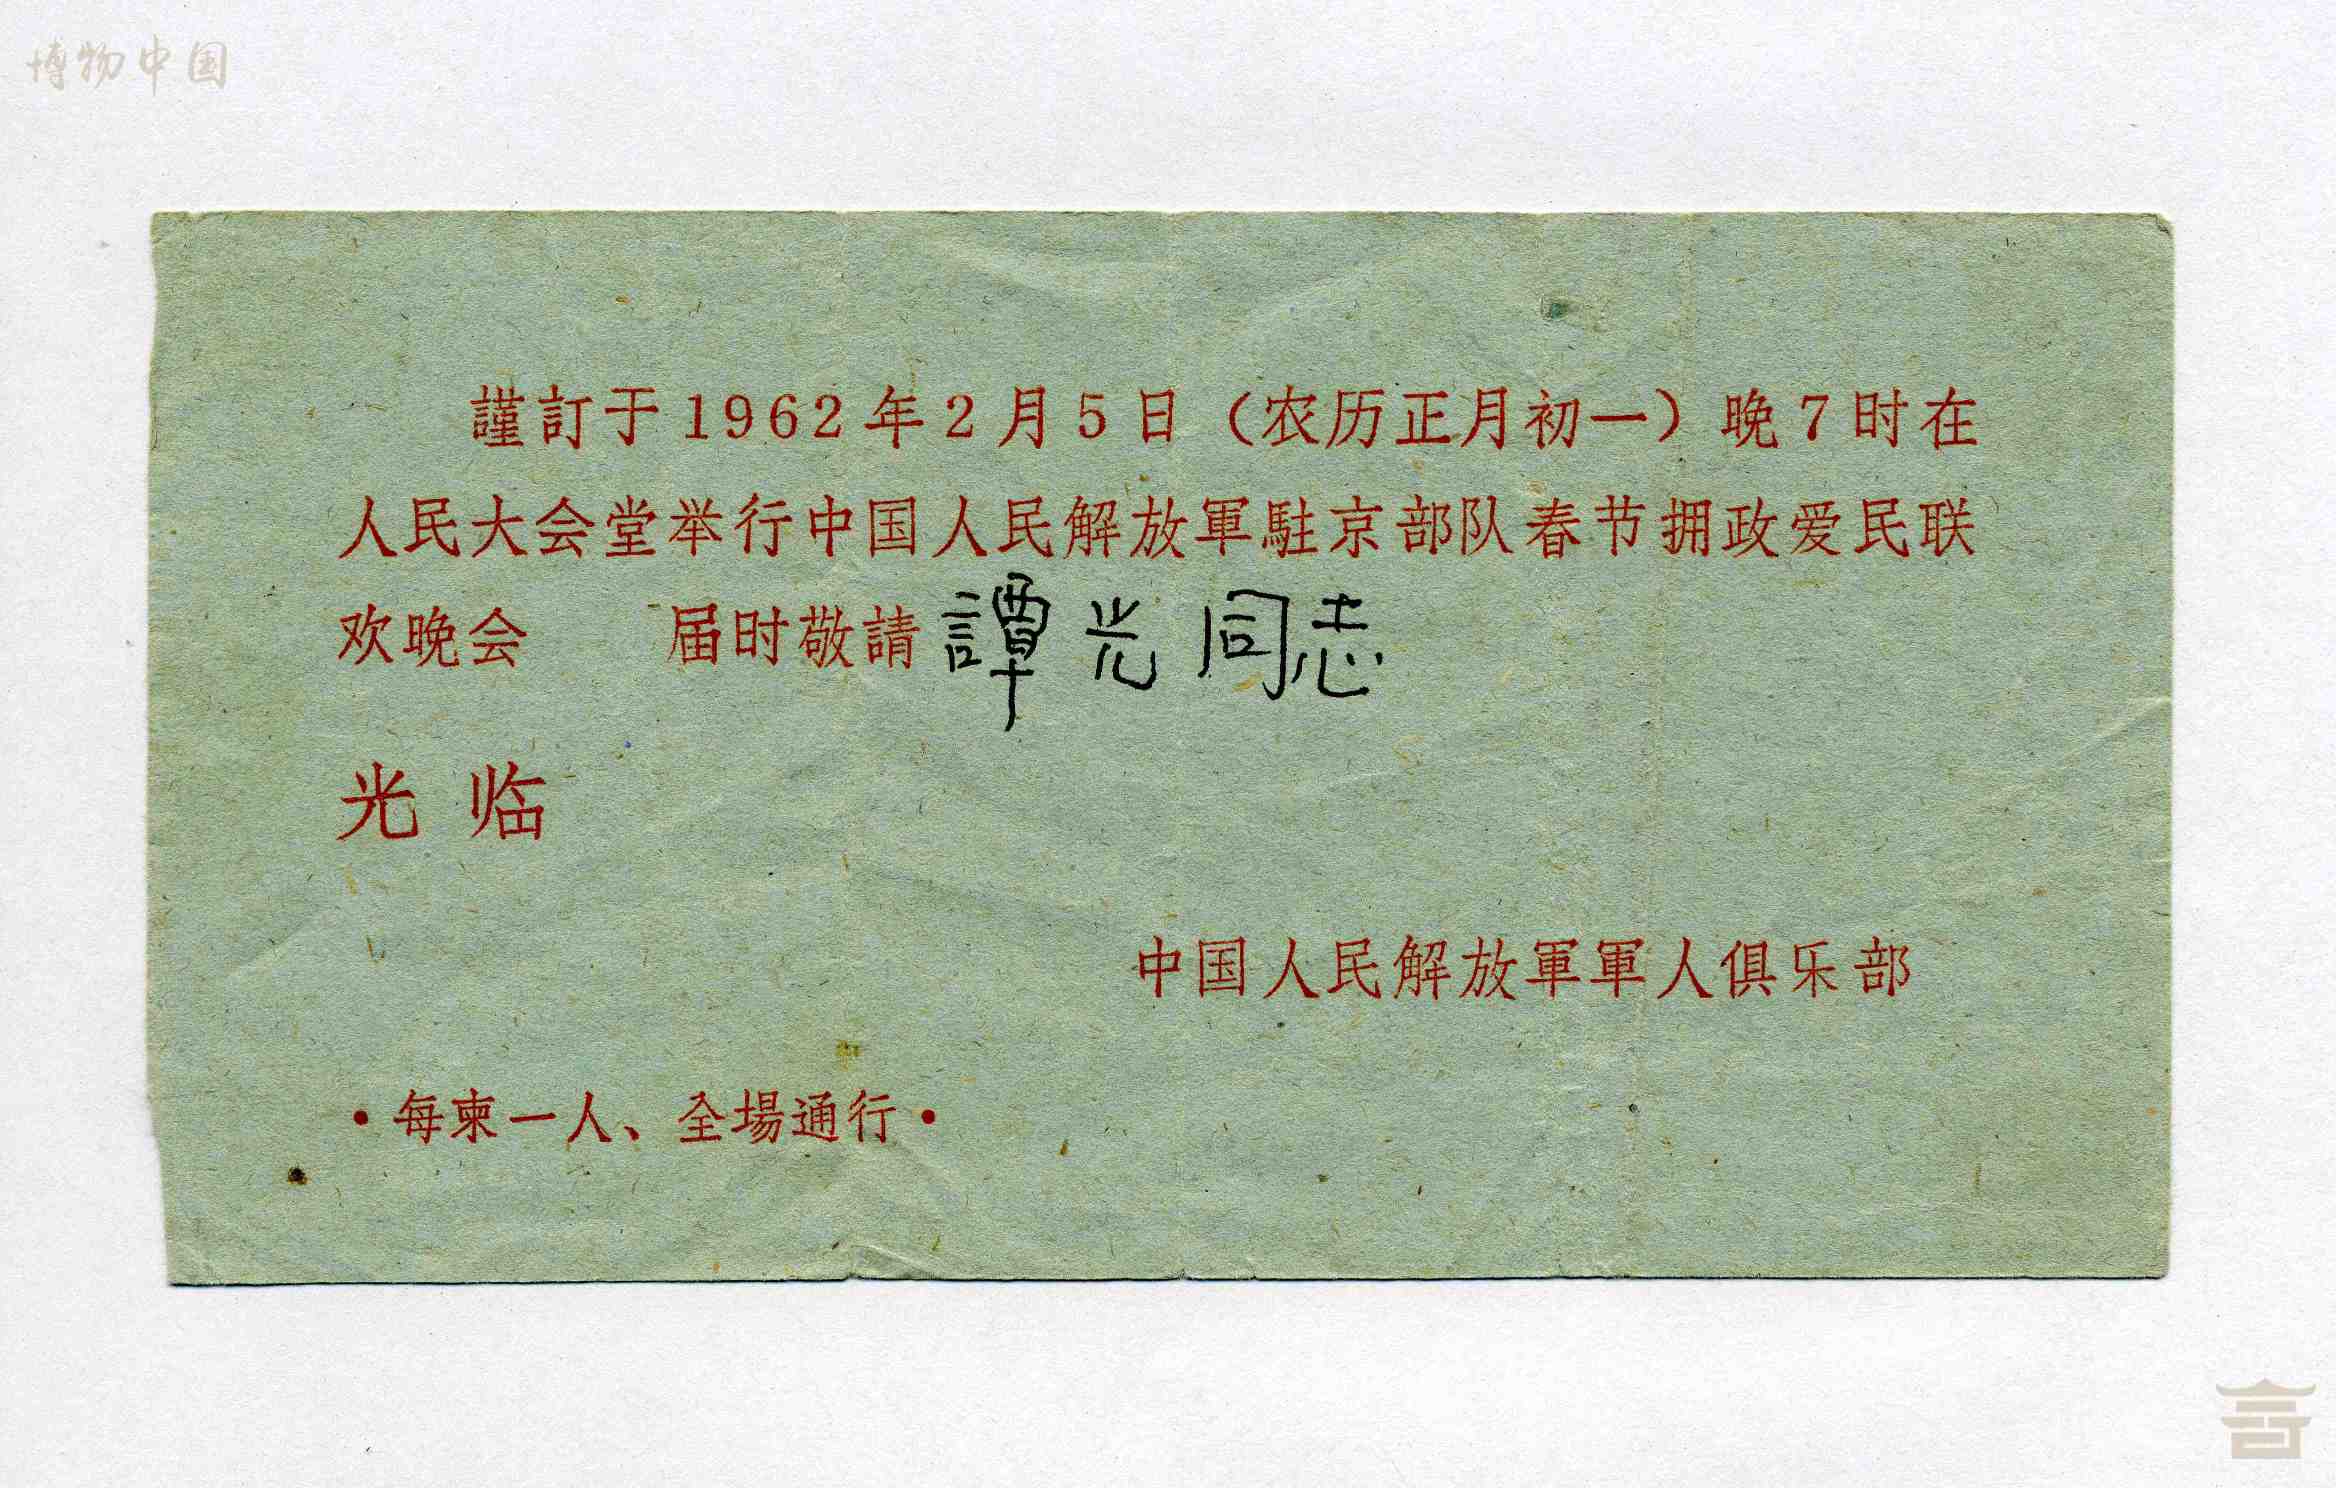 博物中国
謹訂于1962年2月5日（农历正月初一）晚7时在
人民大会堂举行中国人民解放軍駐京部队春节拥政爱民联
欢晚会　　届时敬請譚光同志
光临
中国人民解放軍軍人俱乐部
·每柬一人、全場通行·